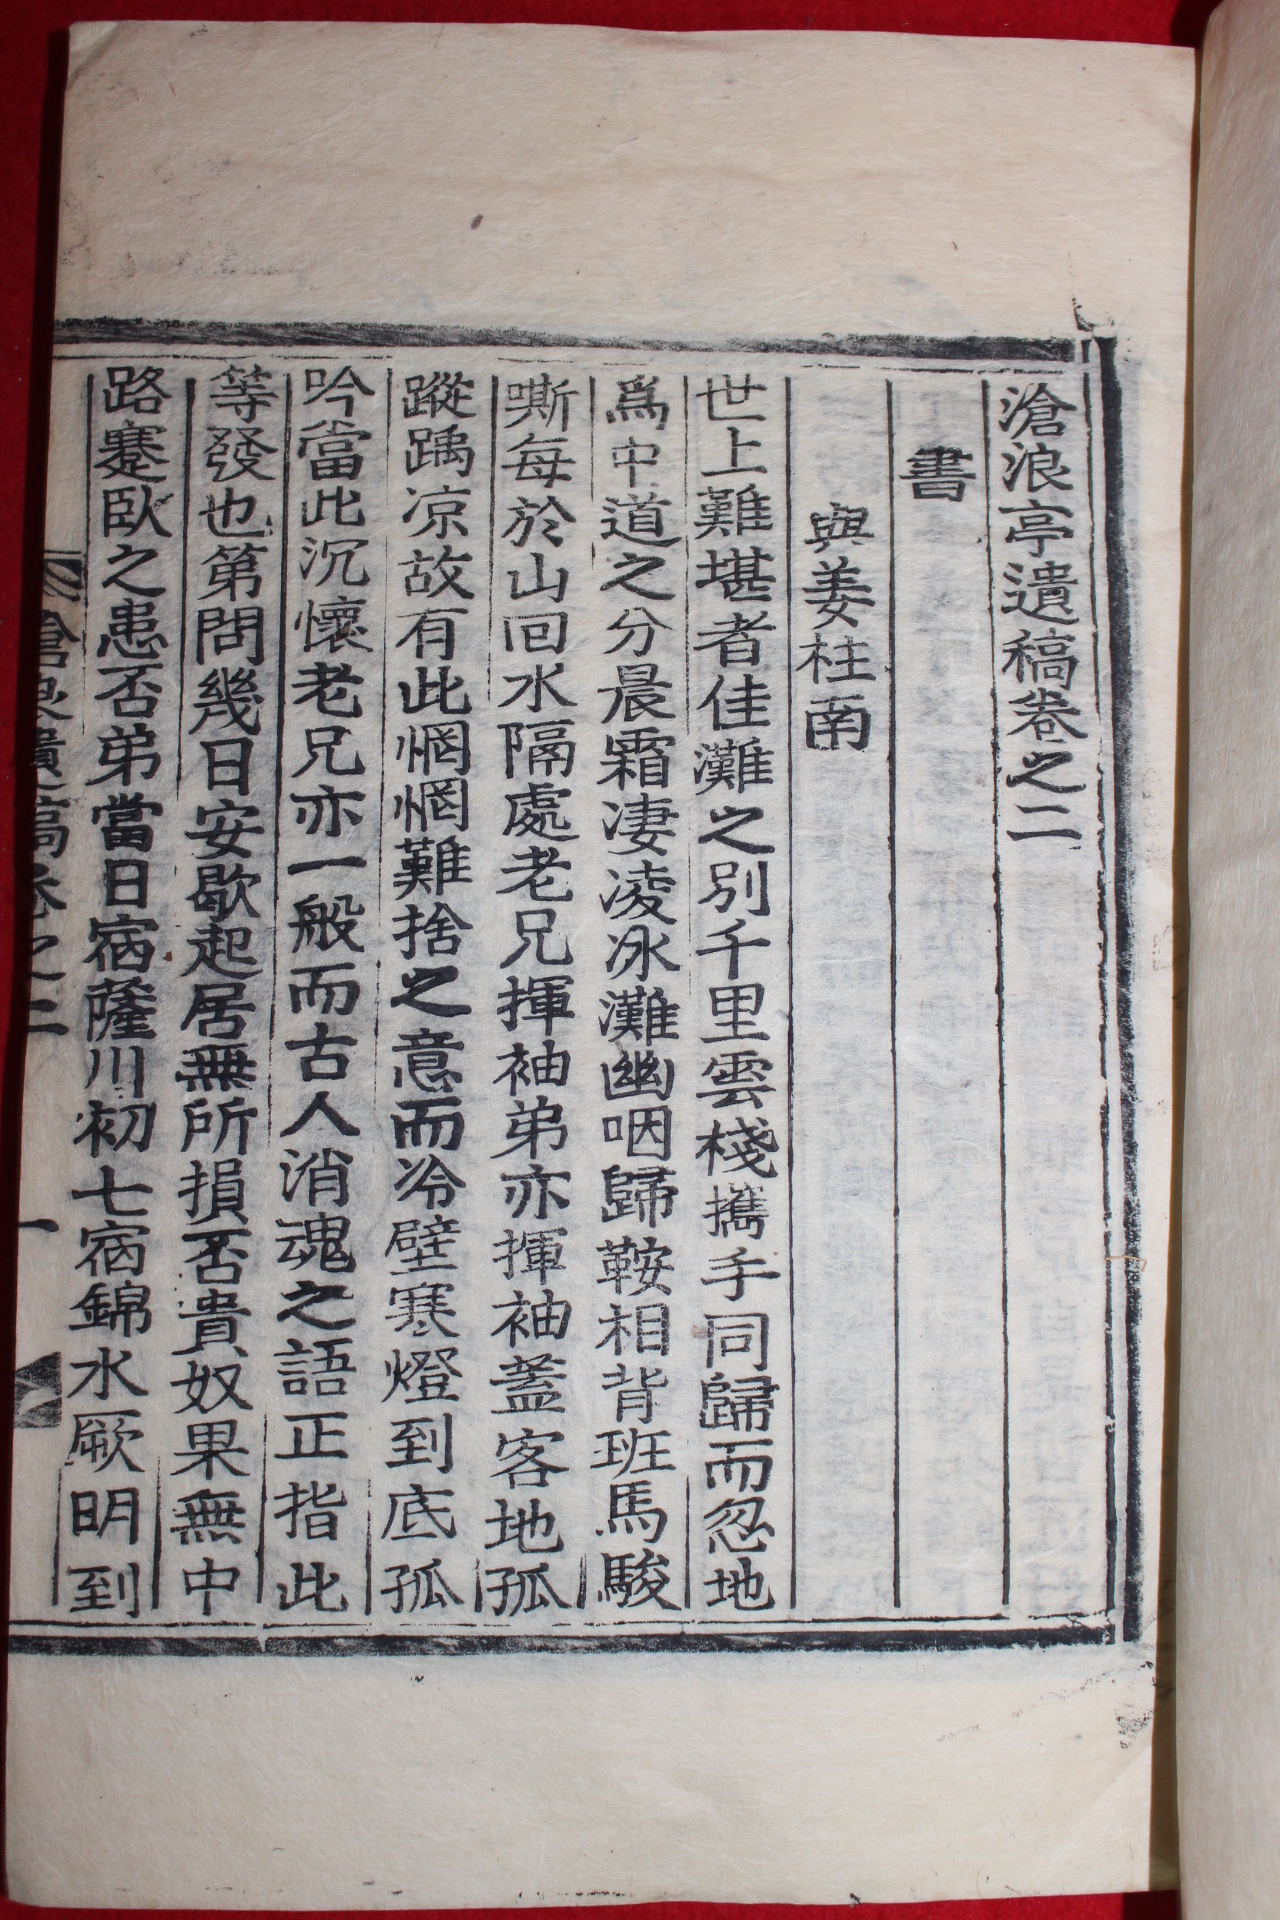 滄浪亭遺稿卷之二
書
與姜柱南
世上難堪者佳灘之別千里雲棧攜手同歸而忽地
爲中道之分晨霜凄凌氷灘幽咽歸鞍相背班馬駿
嘶每於山回水隔處老兄揮袖弟亦揮袖盖客地孤
蹤踽凉故有此惘惘難捨之意而冷壁寒燈到底孤
吟當此沉懷老兄亦一般而古人消魂之語正指此
等發也第問幾日安歇起居無所損否貴奴果無中
路蹇臥之患否弟當日宿薩川初七宿錦水厥明到
滄浪遺稿卷之二
一